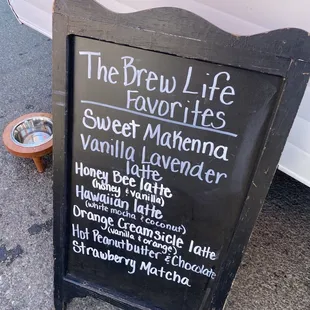 The Brew Life
Favorites
Sweet Makenna
Vanilla Lavender
latte
Honey Bee latte
(honey & vanilla)
Hawaiian latte
(white mocha & coconut)
Orange Creamsicle latte
(vanilla & orange)
Hot Peanutbutter & Chocolate
Strawberry Matcha